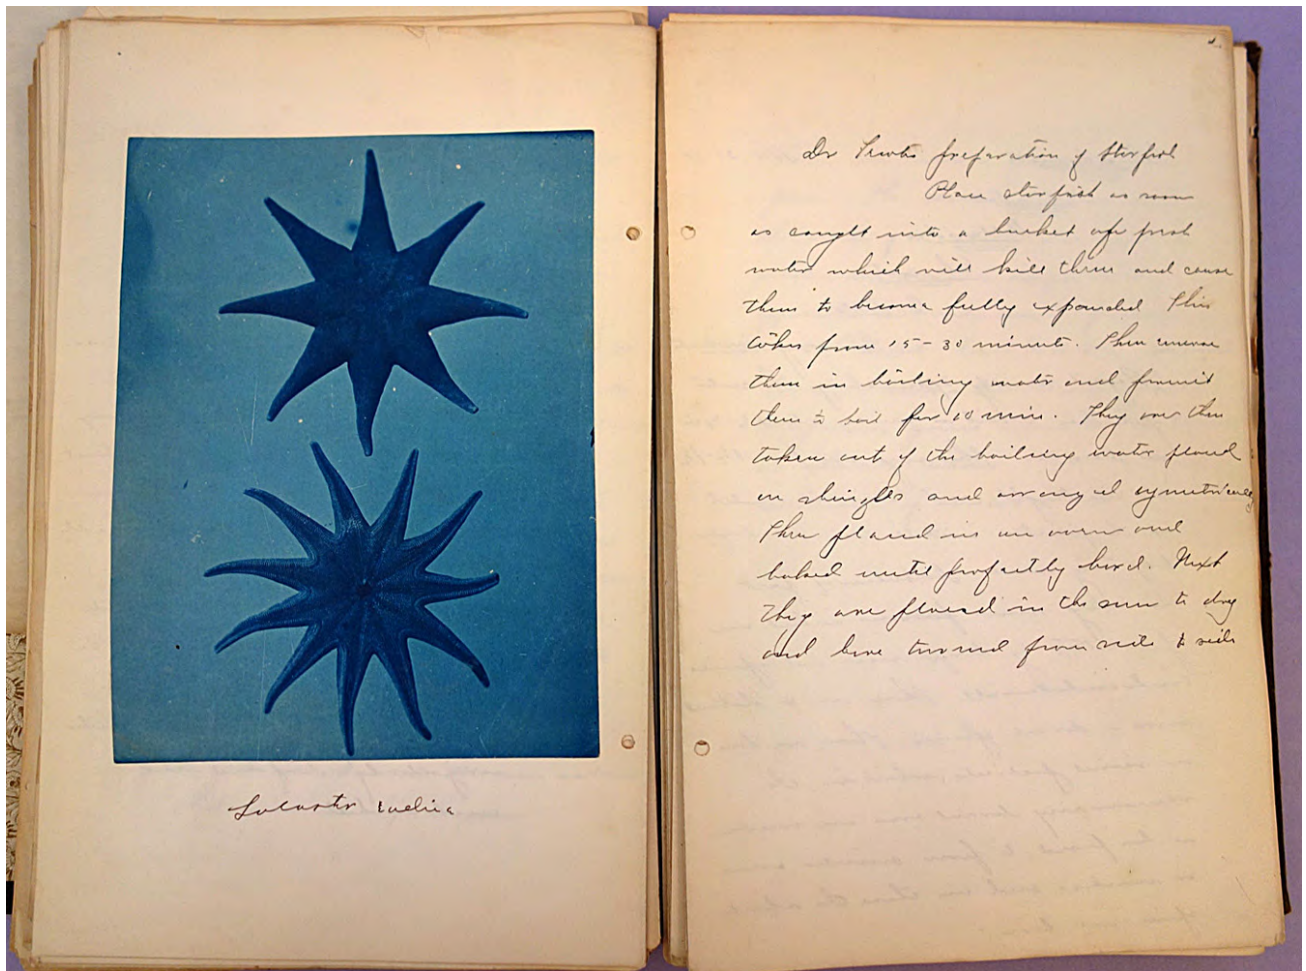 Solaster
Dr preparation of starfish
Place starfish as soon
as caught into a bucket of fresh
water which will kill them and cause
them to become fully expanded This
takes from 15-30 minutes. Then immerse
them in boiling water and permit
them to boil for 10 min. They are then
taken out of the boiling water placed
on shingles and arranged symetrically
Then placed in an oven and
baked until perfectly hard. Next
they are placed in the sun to dry
and turned from side to side